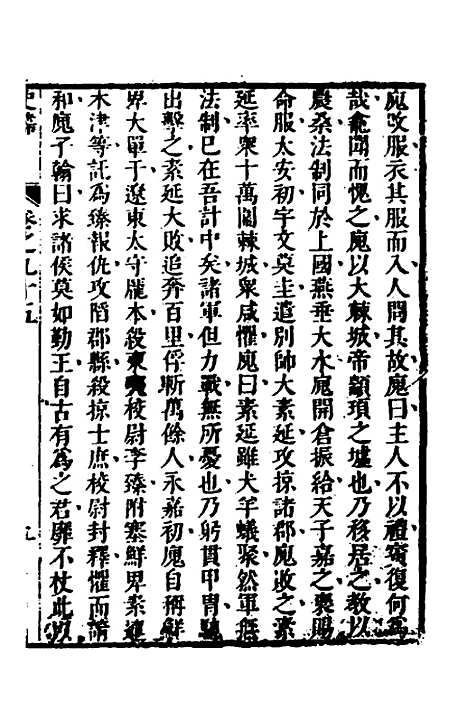 廆改服示其服而入人問其故廆曰主人不以禮賓復何爲
哉龕聞而愧之廆以大棘城帝顓頊之墟也乃移居之教以
農桑法制同於上國燕垂大水廆開倉振給天子嘉之褒賜
命服太安初宇文莫圭遣別帥大素延攻掠諸郡廆敗之素
延率衆十萬圍棘城衆咸懼廆曰素延雖犬羊蟻聚然軍無
法制已在吾計中矣諸軍但力戰無所憂也乃躬貫甲冑馳
出擊之素延大敗追奔百里俘斬萬餘人永嘉初廆自稱鮮
卑大單于遼東太守龐本殺東夷校尉李臻附塞鮮卑素連
木津等託爲臻報仇攻陷郡縣殺掠士庶校尉封釋懼而請
和廆子翰曰求諸侯莫如勤王自古有爲之君靡不杖此以
卷之九十五 九